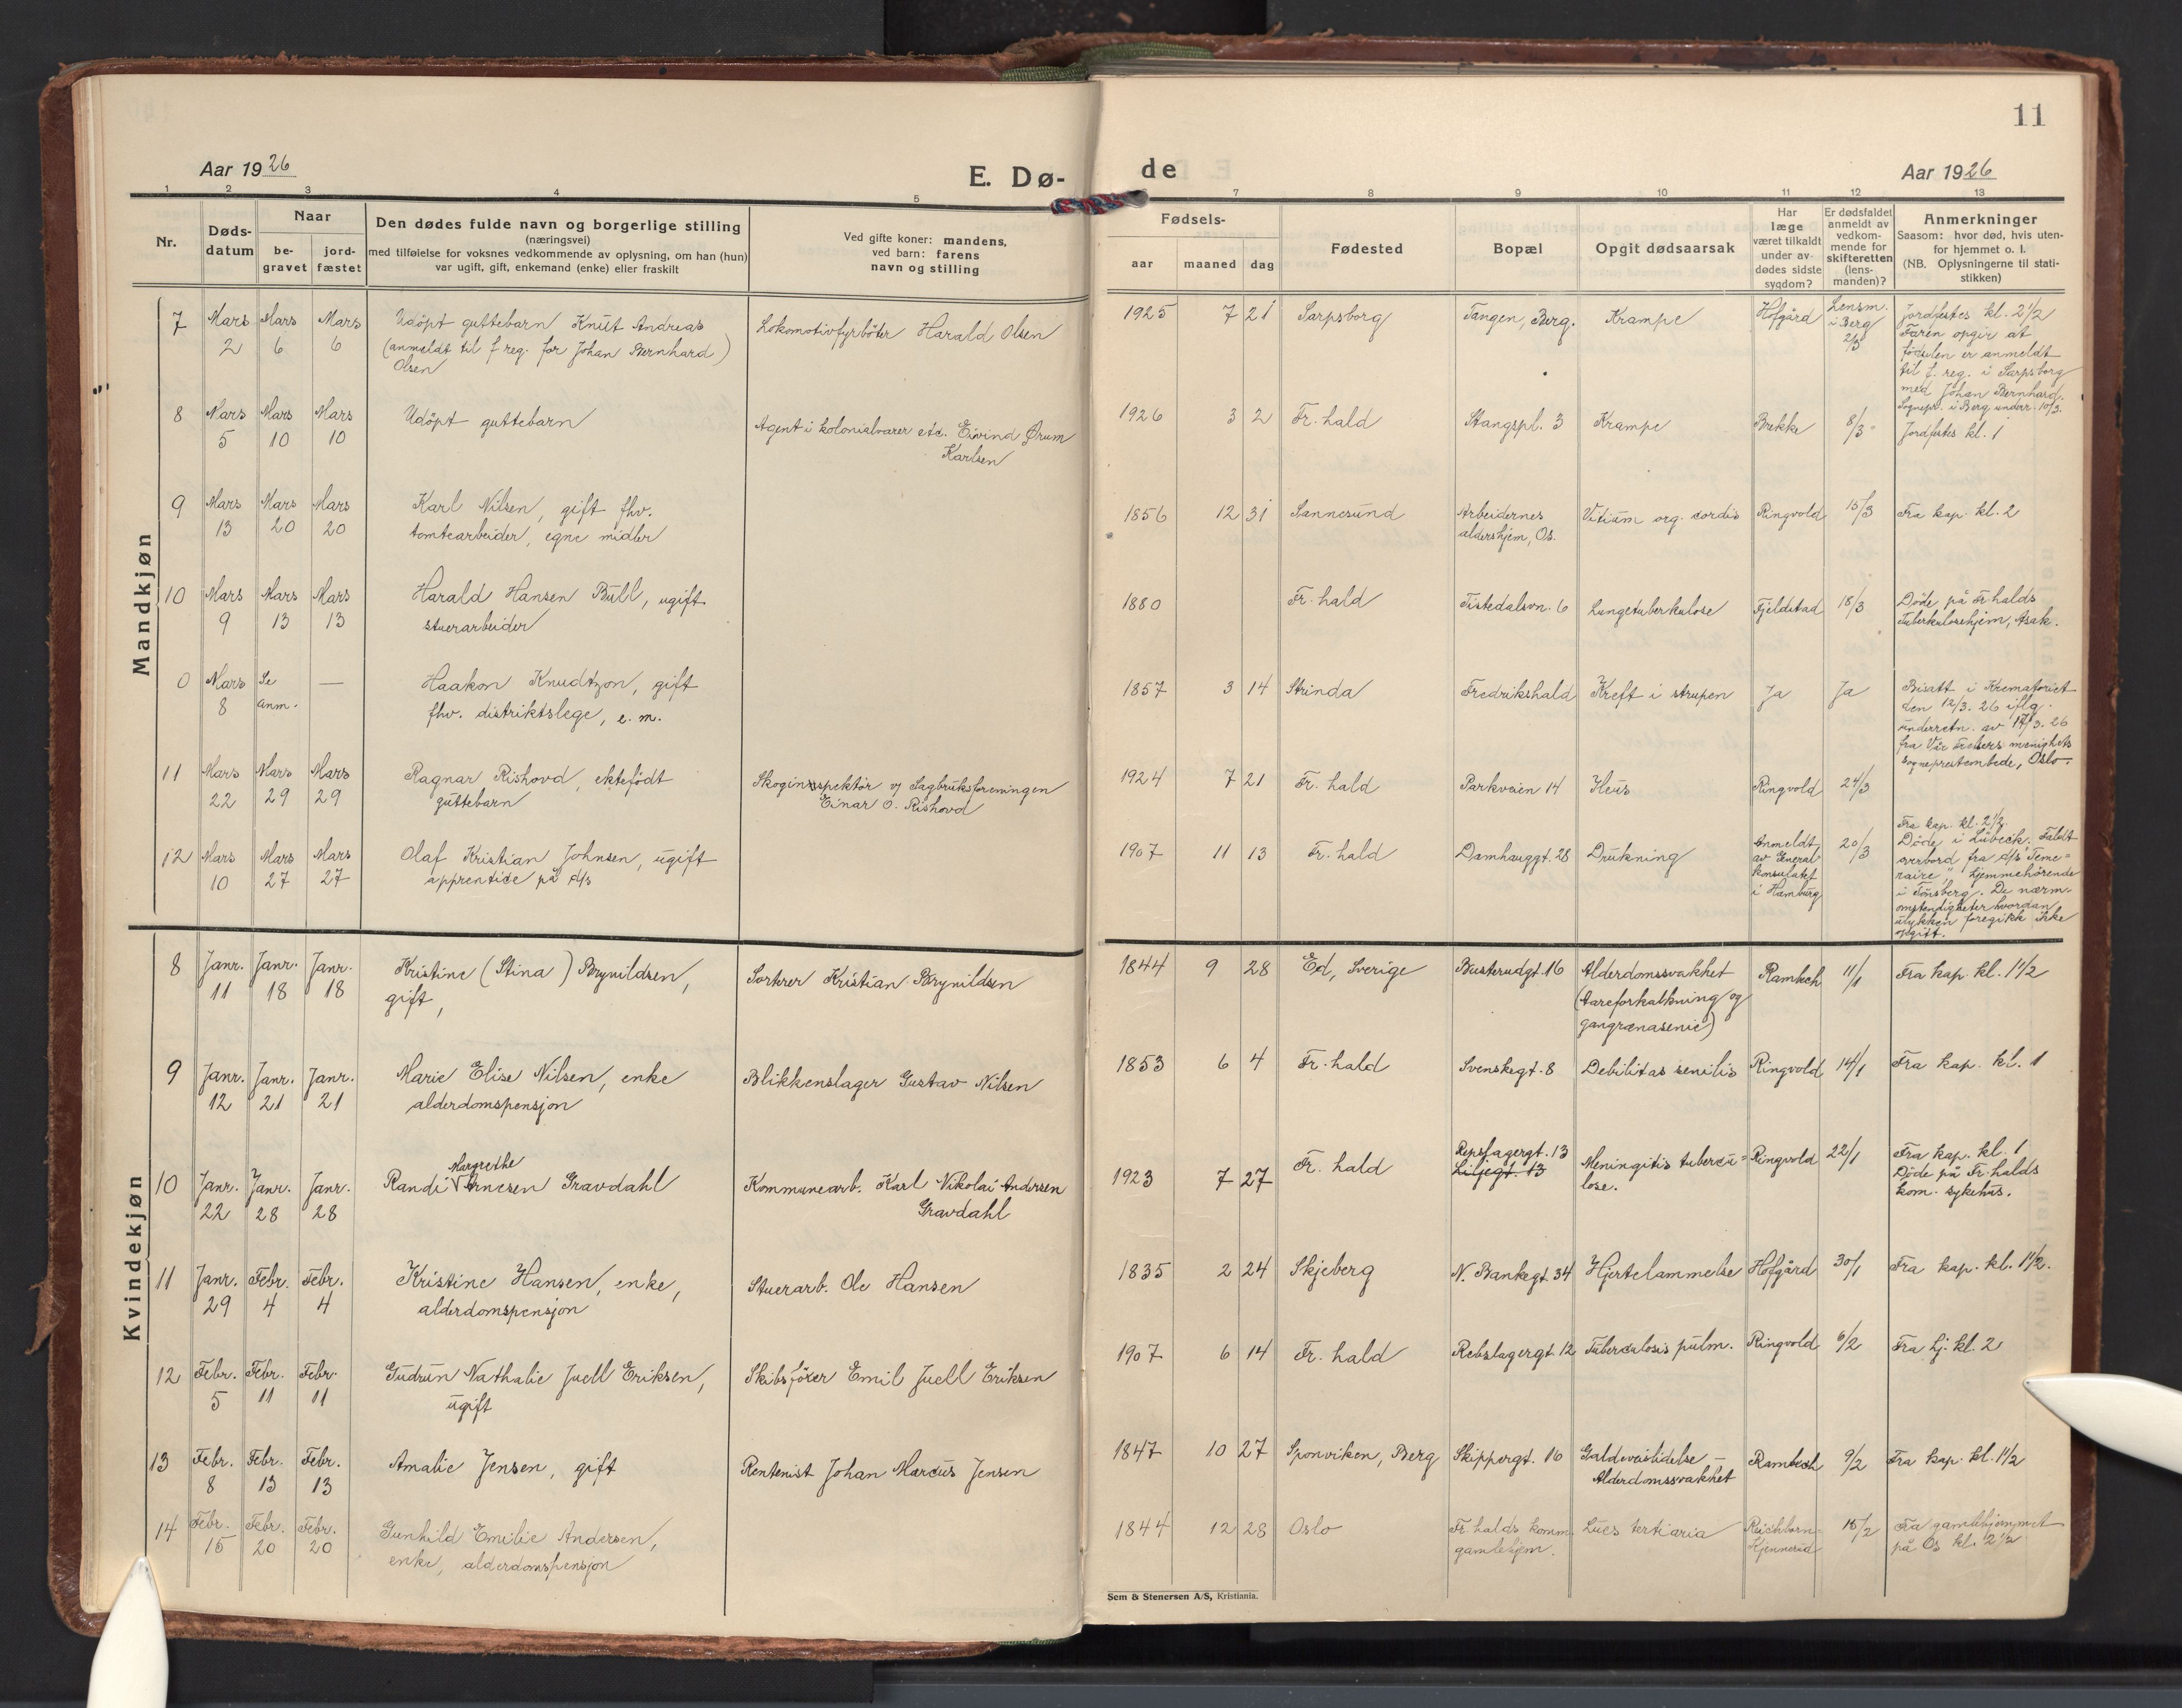 11
Aar 1926
E. Dø-
de
Aar 1926
1 2 3 4 5 7 8 9 10 11 12 13
Nr.
Døds-
datum
Naar
be-
gravet
jord-
fæstet
Den dødes fulde navn og borgerlige stilling
(næringsvei)
med tilføielse for voksnes vedkommende av oplysning, om han (hun)
var ugift, gift, enkemand (enke) eller fraskilt
Ved gifte koner: mandens,
ved barn: farens
navn og stilling
Fødsels-
aar maaned dag
Fødested
Bopæl
Opgit dødsaarsak
Har
læge
været tilkaldt
under av-
dødes sidste
sygdom?
Er dødsfaldet
anmeldt av
vedkom-
mende for
skifteretten
(lens-
manden)?
Anmerkninger
Saasom: hvor død, hvis uten-
for hjemmet o. l.
(NB. Oplysningerne til stati-
stikken)
Mandkjøn
7 Mars 2 Mars 6 Mars 6
Udöpt guttebarn Knut Andreas
(anmeldt til f reg. for Johan Bernhard)
Olsen
Lokomotivfyrböter Harald Olsen
1925 7 21 Sarpsborg Tangen, Berg. Krampe Hofgård
Lensm.
i Berg
2/3
Jordfestes kl. 2 1/2
Faren opgir at
födselen er anmeldt
til f. reg. i Sarpsborg
med Johan Bernhard.
Sognepr. i Berg underr. 10/3.
8 Mars 5 Mars 10 Mars 10
Udöpt guttebarn
Agent i kolonialvarer etc. Eivind Ørum
Karlsen
1926 3 2 Fr. hald Stangspl. 3 Krampe Bekke 8/3
Jordfestes kl. 1
9 Mars 13 Mars 20 Mars 20
Karl Nilsen, gift fhv.
tomtearbeider, egne midler
1856 12 31 Sannesund
Arbeidernes
aldershjem, Os.
Vitium org. cordis Ringvold 15/3 Fra kap. kl. 2
10 Mars 9 Mars 13 Mars 13
Harald Hansen Bull, ugift
stuerarbeider
1880 Fr. hald Tistedalsvn. 6 Lungetuberkulose Fjeldstad 18/3
Döde på Fr.halds
Tuberkulosehjem, Asak.
0 Mars 8 Se anm. —
Haakon Knudtzon, gift
fhv. distriktslege, e. m.
1857 3 14 Strinda Fredrikshald Kreft i strupen Ja Ja
Bisatt i Krematoriet
den 12/3. 26 iflg.
underretn. av 17/3. 26
fra Vår Frelsers menighets
sogneprestembede, Oslo.
11 Mars 22 Mars 29 Mars 29
Ragnar Rishovd, ektefödt
guttebarn
Skoginspektör og Sagbruksforeningen
Einar O. Rishovd
1924 7 21 Fr. hald Parkveien 14 Ileus Ringvold 24/3
Fra kap. kl. 2 1/2
12 Mars 10 Mars 27 Mars 27
Olaf Kristian Johnsen, ugift
apprentice på d/s
1907 11 13 Fr. hald Damhauggt. 28 Drukning
Anmeldt
av General
konsulatet
i Hamburg
20/3
Döde i Lübeck. Faldt
overbord fra d/s "Teme=
raire", hjemmehörende
i Tönsberg. De nærm.
omstendigheter hvordan
ulykken foregikk ikke
opgitt.
Kvindekjøn
8 Janr. 11 Janr. 18 Janr. 18
Kristine (Stina) Brynildsen,
gift,
Sorterer Kristian Brynildsen
1844 9 28 Ed, Sverige Busterudgt. 16
Alderdomssvakhet
(Aareforkalkning og
gangrænasenie)
Rambech 11/1 Fra kap. kl. 1 1/2
9 Janr. 12 Janr. 21 Janr. 21
Marie Elise Nilsen, enke
alderdomspensjon
Blikkenslager Gustav Nilsen
1853 6 4 Fr. hald Svenskegt. 8 Debilitas senilis Ringvold 14/1 Fra kap. kl. 1
10 Janr. 22 Janr. 28 Janr. 28
Margrethe
Randi Arnesen Gravdahl
Kommunearb. Karl Nikolai Andersen
Gravdahl
1923 7 27 Fr. hald
Repslagergt. 13
Liljegt. 13
Meningitis tubercu=
lose.
Ringvold 22/1
Fra kap. kl. 1
Döde på Fr. halds
kom. sykehus.
11 Janr. 29 Febr. 4 Febr. 4
Kristine Hansen, enke,
alderdomspensjon
Stuerarb. Ole Hansen
1835 2 24 Skjeberg N. Bankegt. 34 Hjertelammelse Hofgård 30/1 Fra kap. kl. 1 1/2.
12 Febr. 5 Febr. 11 Febr. 11
Gudrun Nathalie Juell Eriksen,
ugift
Skibsförer Emil Juell Eriksen
1907 6 14 Fr. hald Rebslagergt. 12 Tuberculosis pulm. Ringvold 6/2 Fra hj. kl. 2
13 Febr. 8 Febr. 13 Febr. 13
Amalie Jensen, gift
Rentenist Johan Marcus Jensen
1847 10 27 Sponviken, Berg Skippergt. 16
Galdeveislidelse –
Alderdomssvakhet
Rambech 9/2 Fra kap. kl. 1 1/2
14 Febr. 15 Febr. 20 Febr. 20
Gunhild Emilie Andersen,
enke, alderdomspensjon
1844 12 28 Oslo
Fr. halds komm.
gamlehjem.
Lues tertiaria
Reichborn-
Kjennerud
15/2
Fra gamlehjemmet
på Os kl. 2 1/2
Sem & Stenersen A/S, Kristiania.